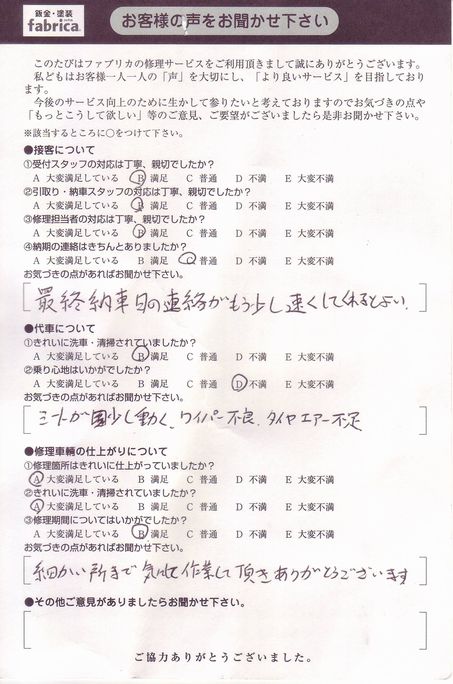 鈑金・塗装
fabrica.
お客様の声をお聞かせ下さい
このたびはファブリカの修理サービスをご利用頂きまして誠にありがとうございます。
私どもはお客様一人一人の「声」を大切にし、「より良いサービス」を目指しており
ます。
今後のサービス向上のために生かして参りたいと考えておりますのでお気づきの点や
「もっとこうして欲しい」等のご意見、ご要望がございましたら是非お聞かせ下さい。
※該当するところに○をつけて下さい。
●接客について
①受付スタッフの対応は丁寧、親切でしたか?
A 大変満足している B 満足 C 普通 D 不満 E 大変不満
②引取り・納車スタッフの対応は丁寧、親切でしたか?
A 大変満足している B 満足 C 普通 D 不満 E 大変不満
③修理担当者の対応は丁寧、親切でしたか?
A 大変満足している B 満足 C 普通 D 不満 E 大変不満
④納期の連絡はきちんとありましたか?
A 大変満足している B 満足 C 普通 D 不満 E 大変不満
お気づきの点があればお聞かせ下さい。
最終納車日の連絡がもう少し速くしてくれるとよい.
●代車について
①きれいに洗車・清掃されていましたか?
A 大変満足している B 満足 C 普通 D 不満 E 大変不満
②乗り心地はいかがでしたか?
A 大変満足している B 満足 C 普通 D 不満 E 大変不満
お気づきの点があればお聞かせ下さい。
シートが少し動く、ワイパー不良、タイヤエアー不足
●修理車輌の仕上がりについて
①修理箇所はきれいに仕上がっていましたか?
A 大変満足している B 満足 C 普通 D 不満 E 大変不満
②きれいに洗車・清掃されていましたか?
A 大変満足している B 満足 C 普通 D 不満 E 大変不満
③修理期間についてはいかがでしたか?
A 大変満足している B 満足 C 普通 D 不満 E 大変不満
お気づきの点があればお聞かせ下さい。
細かい所まで気にして作業して頂きありがとうございます
●その他ご意見がありましたらお聞かせ下さい。
ご協力ありがとうございました。